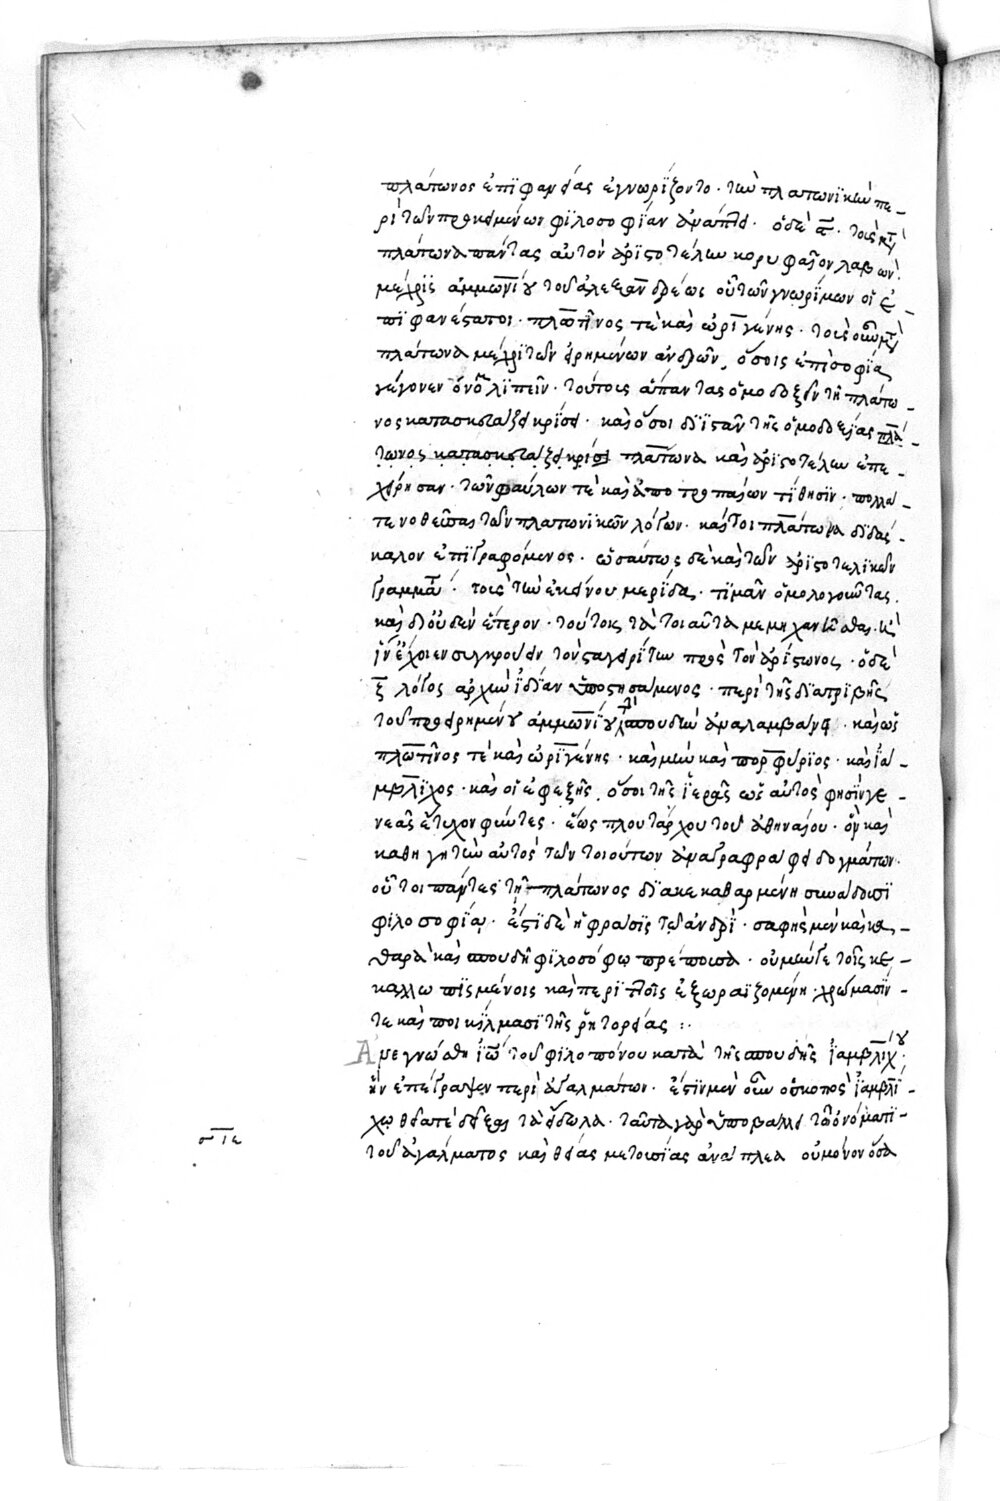 πλάτωνος ἐπϊφανείας ἐγνωρΐζοντο· τῶν πλατωνϊκῶν πε-
ρὶ τῶν προκειμένων φϊλοσοφΐαν ἀνάπτει· ὁ δὲ ϛ· τοὺς μετὰ
πλάτωνα πάντας αὐτὸν ἀρϊστοτέλην κορυφαῖον λαβὼν·
μέχρϊς ἀμμωνΐου τοῦ ἀλεξανδρέως οὗ τῶν γνωρΐμων οἱ ἐ-
πϊφανέστατοι· πλωτῖνος τὲ καὶ ὠρϊγένης· τοὺς οὖν μετὰ
πλάτωνα μέχρϊ τῶν εἰρημένων ἀνδρῶν, ὅσοις ἐπὶ σοφΐᾳ
γέγονεν ὄνομα λϊπεῖν· τούτοις ἅπαντας ὁμοδοξεῖν τῇ πλάτω-
νος κατασκευάζει κρίσει· καὶ ὅσοι δϊϊστᾶν τῆς ὁμοδοξΐας πλά-
τωνος κατασκευάζει κρίσει πλάτωνα καὶ ἀρϊστοτέλην ἐπε-
χείρησαν· τῶν φαύλων τὲ καὶ ἀποτροπαίων τΐθησϊν· πολλὰ
τε νοθεῦσαι τῶν πλατωνϊκῶν λόγων· καίτοι πλάτωνα δϊδάσ-
καλον ἐπϊγραφόμενος· ὡσαύτως δὲ καὶ τῶν ἀρϊστοτελϊκῶν
γραμμάτων· τοὺς τὴν ἐκείνου μερίδα· τϊμᾶν ὁμολογοῦντας.
καὶ δι' οὐδὲν ἕτερον· τούτοις τὰ τοιαῦτα μεμηχανῆσθαι· ἢ
ἵν' ἔχοιεν συγκρούειν τὸν σταγειρίτην πρὸς τὸν ἀρίστωνος· ὁ δὲ
ζ λόγος ἀρχὴν ἰδΐαν ὑποστησάμενος· περὶ τῆς δϊατρϊβῆς
τοῦ προειρημένου ἀμμωνΐου τὴν σπουδὴν ἀναλαμβάνει· καὶ ὡς
πλωτῖνος τὲ καὶ ὠρϊγένης· καὶ μὴν καὶ πορφύρϊος· καὶ ἰά-
μβλϊχος· καὶ οἱ ἐφεξῆς, ὅσοι τῆς ἱερᾶς ὡς αὐτὸς φησϊν γε-
νεᾶς ἔτυχον φύντες· ἕως πλουτάρχου τοῦ ἀθηναίου· ὃν καὶ
καθηγητὴν αὐτὸς τῶν τοιούτων ἀναγράφει δογμάτων·
οὗτοι πάντες τῇ πλάτωνος δϊακεκαθαρμένῃ συνάδουσϊ
φϊλοσοφΐᾳ· ἔστϊ δὲ ἡ φράσϊς τῷ ἀνδρὶ· σαφὴς μὲν καὶ κα-
θαρὰ καὶ σπουδῇ φϊλοσόφῳ πρέπουσα· οὐ μέν γε τοῖς κε-
καλλωπϊσμένοις καὶ περϊττοῖς ἐξωραϊζομένη· χρώμασϊν
τε καὶ ποικΐλμασϊ τῆς ῥητορείας :·
Ἀνεγνώσθη ἰωάννου τοῦ φϊλοπόνου κατὰ τῆς σπουδῆς ἰαμβλΐχου·
ἣν ἐπέγραψεν περὶ ἀγαλμάτων· ἔστϊν μὲν οὖν ὁ σκοπὸς ἰαμβλΐ-
χῳ θεῖά τε δεῖξαι τὰ εἴδωλα· ταῦτα γὰρ ὑποβάλλει τῷ ὀνόματϊ
σῑε
τοῦ ἀγάλματος καὶ θείας μετουσίας ἀνάπλεα οὐ μόνον ὅσα